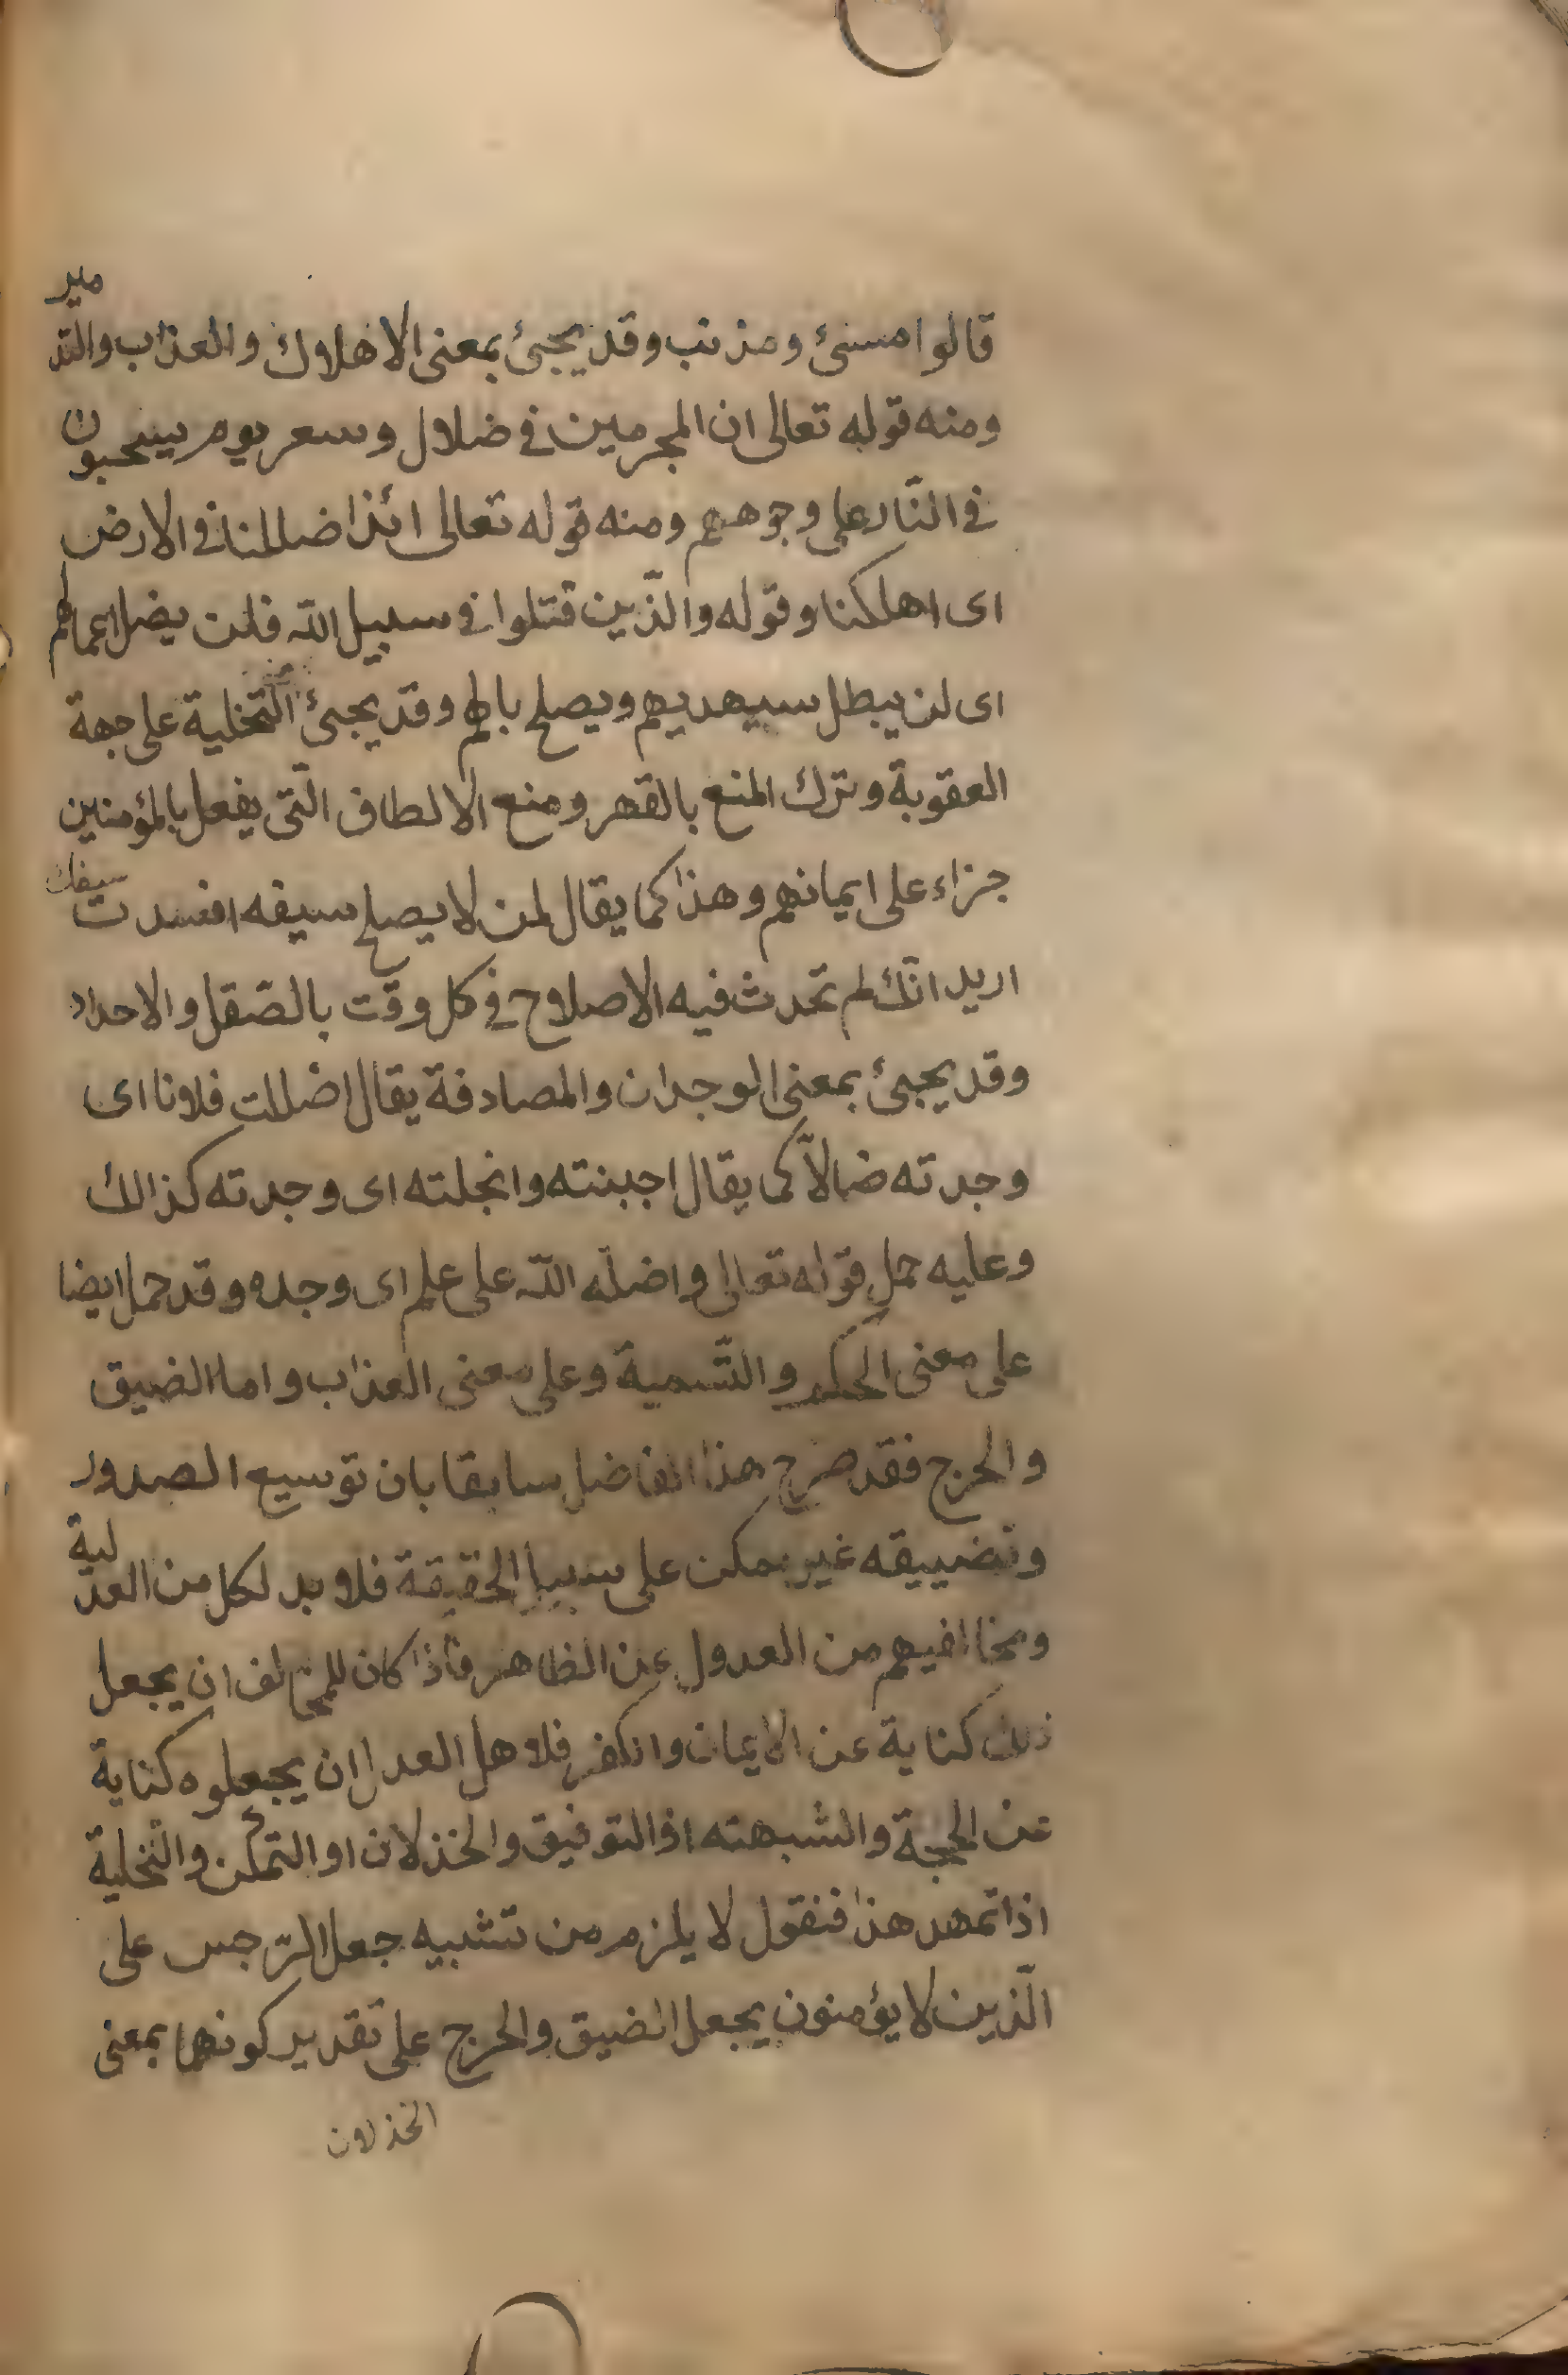 قالوا مسئ ومذنب وقد يجئ بمعنى الاهلاك والعذاب والتدمير
ومنه قوله تعالى ان المجرمين فى ضلال وسعر يوم يسحبون
فى النّار على وجوههم ومنه قوله تعالى ائذا ضللنا فى الارض
اى اهلكنا وقوله والّذين قتلوا فى سبيل اللّه فلن يضل اعمالهم
اى لن يبطل سيهديهم ويصلح بالهم وقد يجئ التّخلية على جهة
العقوبة وترك المنع بالقهر ومنع الالطاف الّتى يفعل بالمؤمنين
جزاء على ايمانهم وهذا كما يقال لمن لا يصلح سيفه افسدت سيفك
اريد انّك لم تحدث فيه الاصلاح فى كل وقت بالصّقل والاحداد
وقد يجئ بمعنى الوجدان والمصادفة يقال اضللت فلانا اى
وجدته ضالاّ كما يقال اجبنته وانجلته اى وجدته كذالك
وعليه حمل قوله تعالى واضلّه اللّه على علم اى وجده وقد حمل ايضا
على معنى الحكم والتّسمية وعلى معنى العذاب واما الضيق
والحرج فقد صرح هذا الفاضل سابقا بان توسيع الصدور
وتضييقه غير ممكن على سبيل الحقيقة فلا بد لكل من العدلية
ومخالفيهم من العدول عن الظاهر فاذا كان للمخالف ان يجعل
ذلك كناية عن الايمان والكفر فلاهل العدل ان يجعلوه كناية
عن الحجة والشبهته اذ التوفيق والخذلان او التمكّن والتّخلية
اذا تمهد هذا فنقول لا يلزم من تشبيه جعل الرّجس على
الّذين لا يؤمنون يجعل الضيق والحرج على تقدير كونهما بمعنى
الخذلان